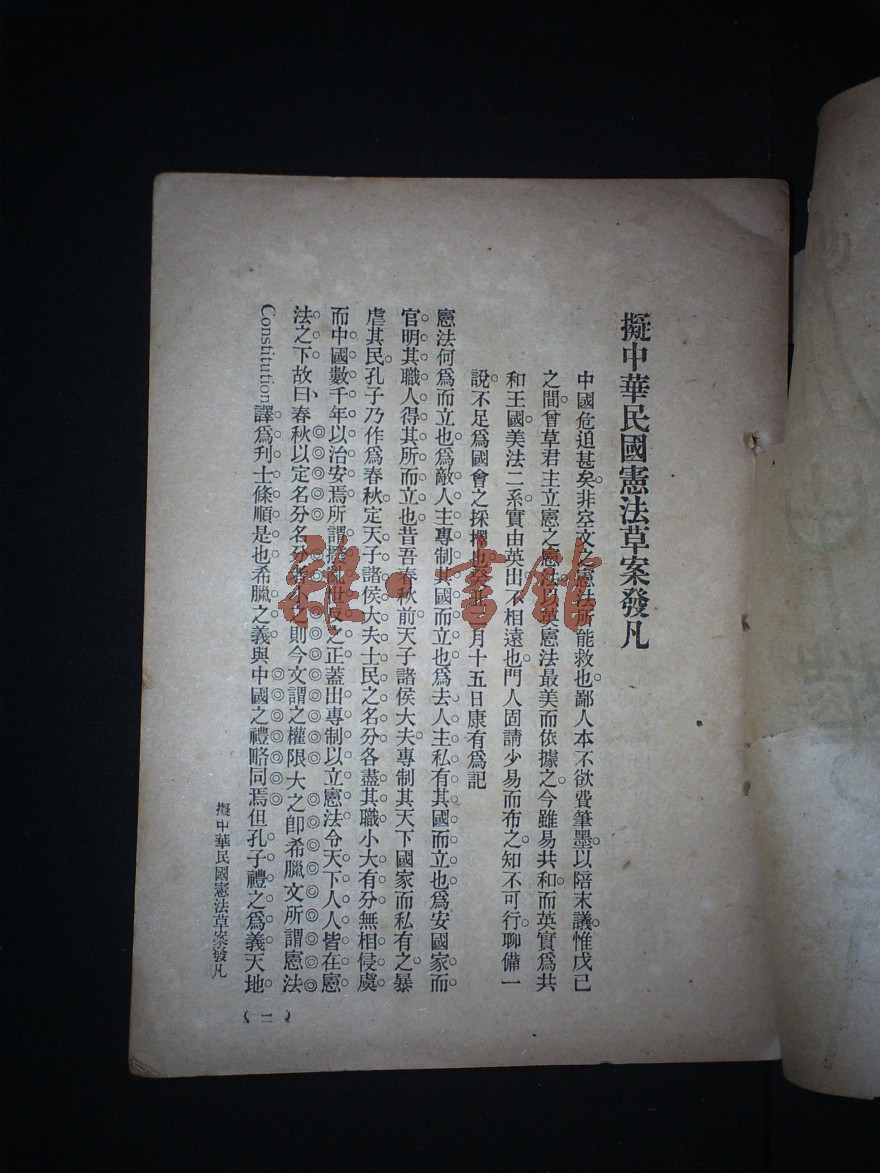 擬中華民國憲法草案發凡
中國危迫甚矣非空文之憲法所能救也鄙人本不欲費筆墨以陪末議惟戊己
之間曾草君主立憲之憲法以英憲法最美而依據之今雖易共和而英實爲共
和王國美法二系實由英出不相遠也門人固請少易而布之知不可行聊備一
說不足爲國會之採擇也癸丑 月十五日康有爲記
憲法何爲而立也爲敵人主專制其國而立也爲去人主私有其國而立也爲安國家而
官明其職人得其所而立也昔吾春秋前天子諸侯大夫專制其天下國家而私有之暴
虐其民孔子乃作爲春秋定天子諸侯大夫士民之名分各盡其職小大有分無相侵虞
而中國數千年以治安焉所謂撥亂世反之正蓋出專制以立憲法令天下人人皆在憲
法之下故曰春秋以定名分名分 之則今文謂之權限大之卽希臘文所謂憲法
Constitution譯爲列士條順是也希臘之義與中國之禮略同焉但孔子禮之爲義天地
擬中華民國憲法草案發凡
(一)
雅書館